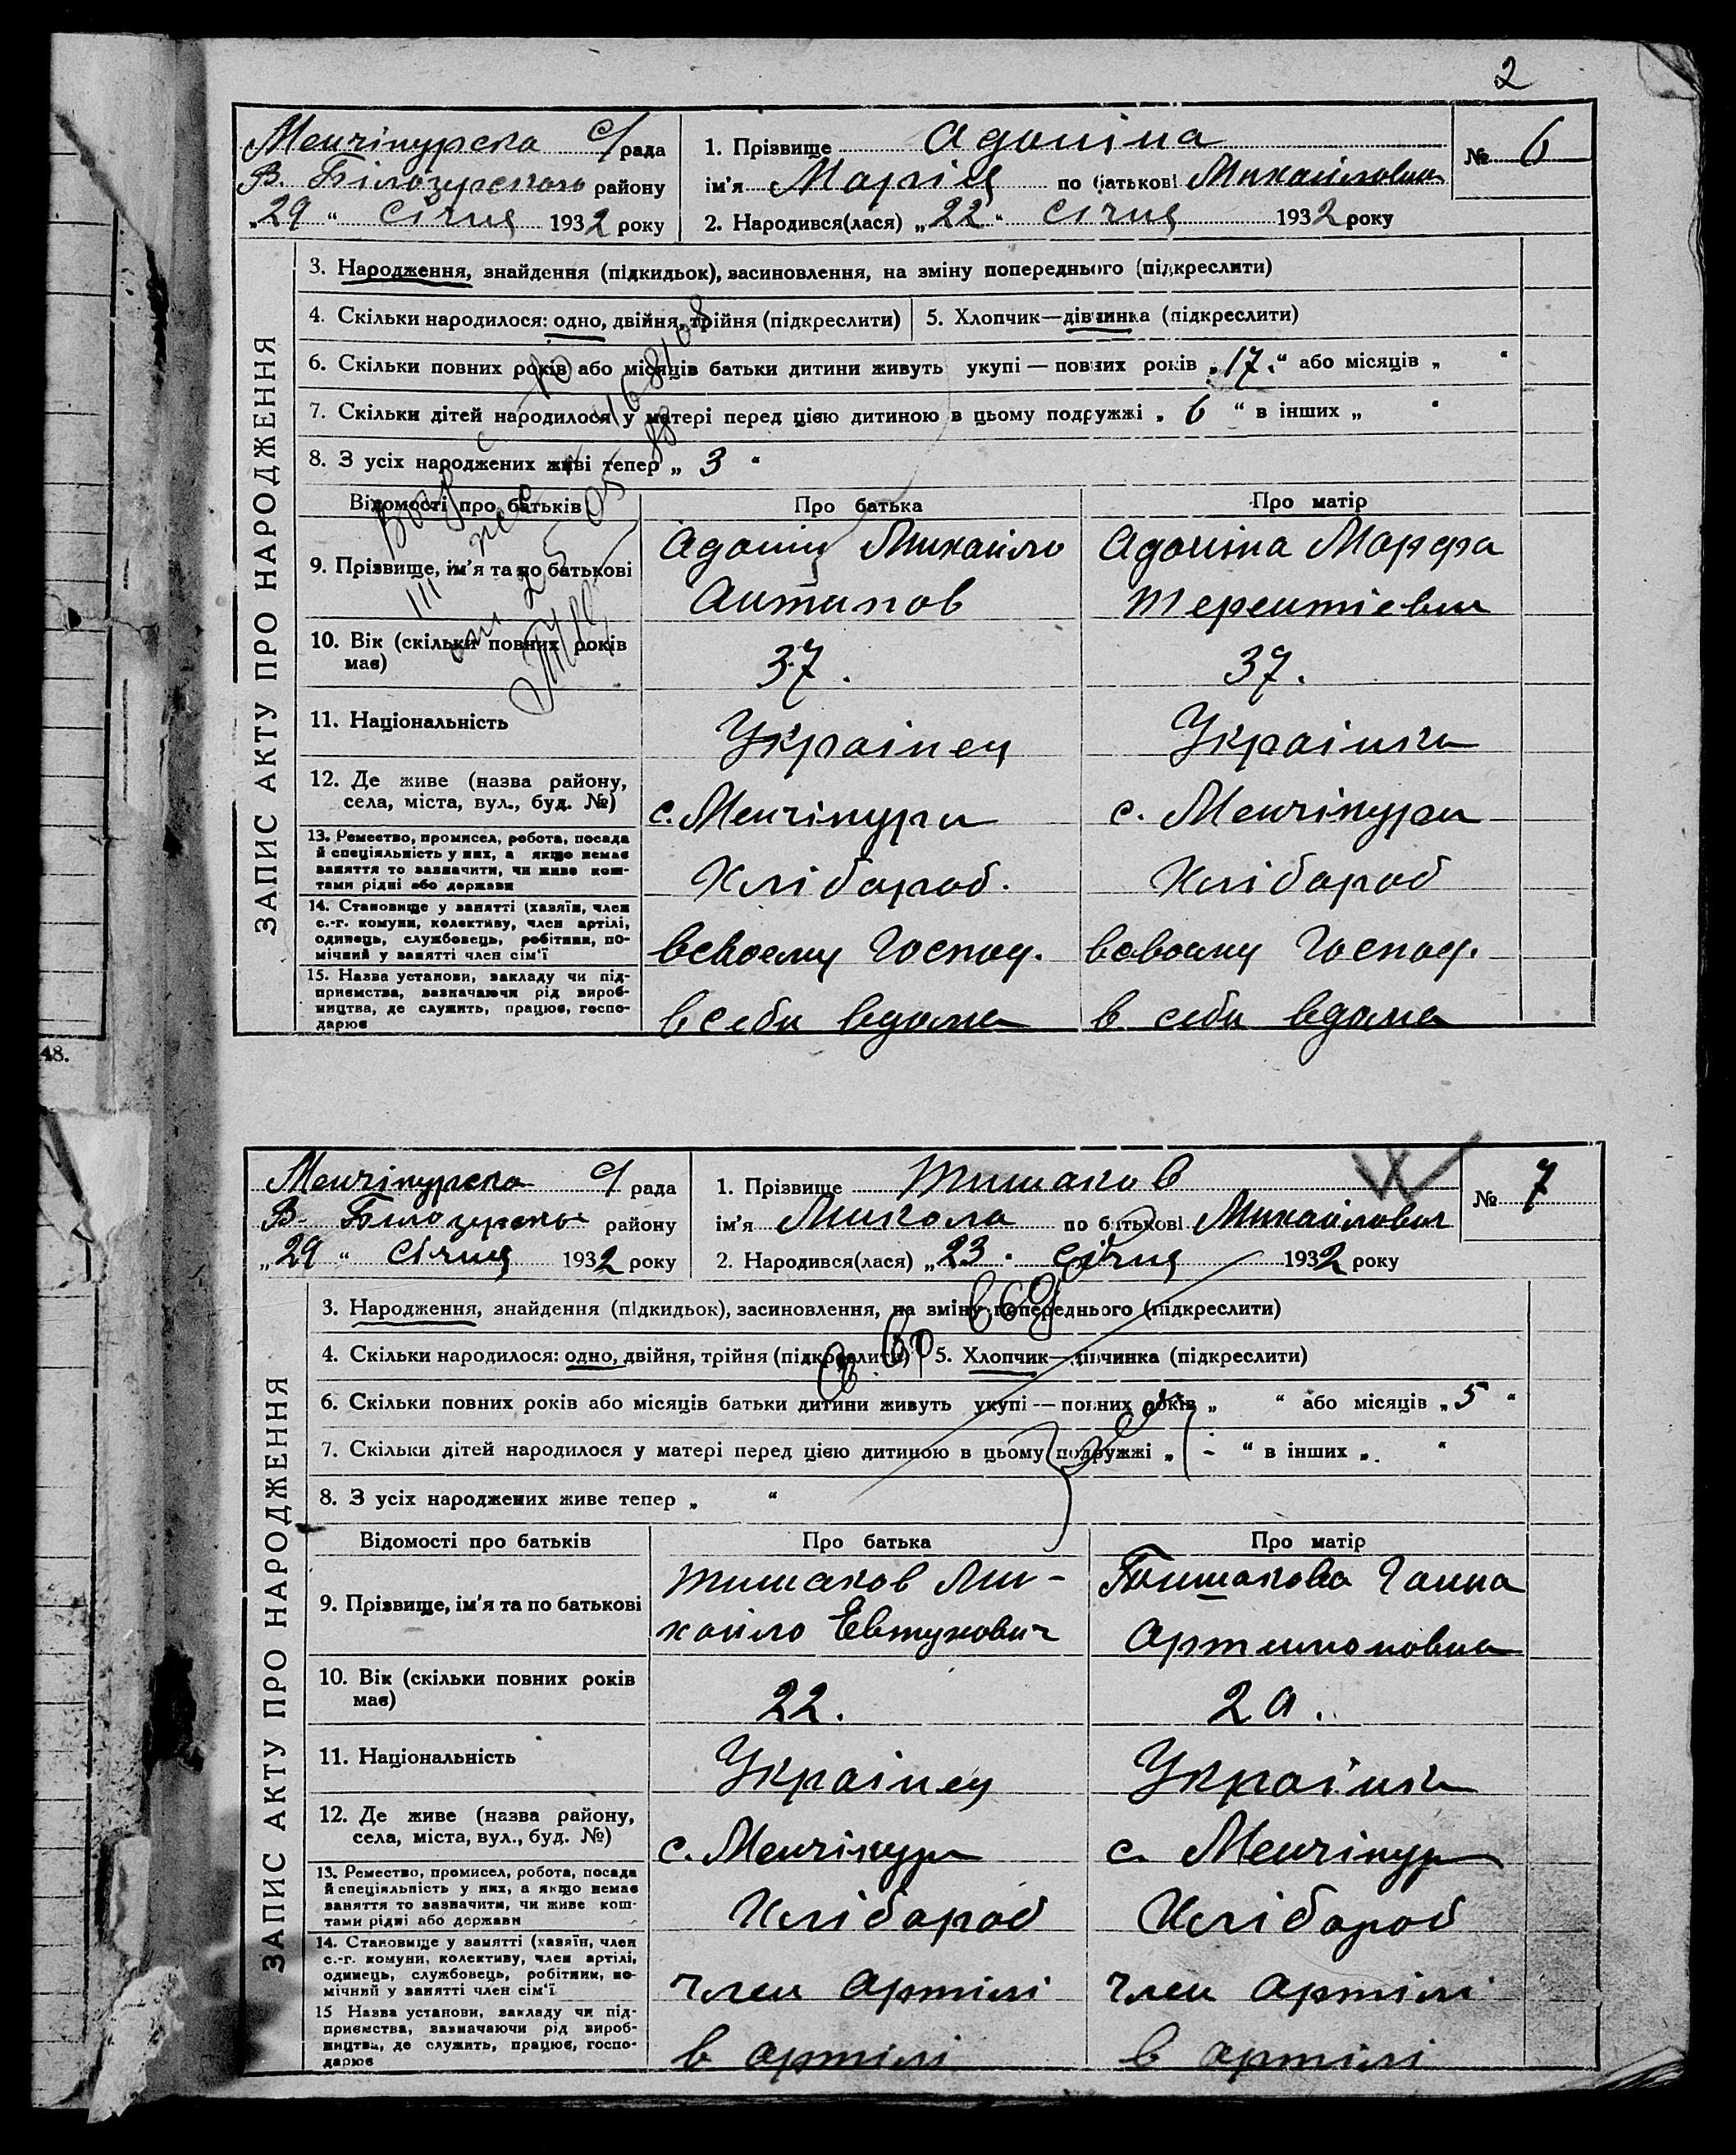 2
Менчікурска с/рада
В. Білозерського району
„29“ Січня 1932 року
1. Прізвище Адоніна
ім'я Марія по батькові Михайловна
2. Народився(лася) „22“ Січня 1932 року
№ 6
ЗАПИС АКТУ ПРО НАРОДЖЕННЯ
3. Народження, знайдення (підкидьок), засиновлення, на зміну попереднього (підкреслити)
4. Скільки народилося: одно, двійня, трійня (підкреслити)
5. Хлопчик—дівчинка (підкреслити)
6. Скільки повних років або місяців батьки дитини живуть укупі — повних років „17.“ або місяців „ “
7. Скільки дітей народилося у матері перед цією дитиною в цьому подружжі „ 6 “ в інших „ “
8. З усіх народжених живі тепер „ 3 “
Відомості про батьків Про батька Про матір
9. Прізвище, ім'я та по батькові
Адонін Михайло
Антипов
Адоніна Марфа
Терентієвна
10. Вік (скільки повних років
має)
37. 37.
11. Національність Українец Українка
12. Де живе (назва району,
села, міста, вул., буд. №)
с. Менчікури с. Менчікури
13. Ремество, промисел, робота, посада
й спеціяльність у них, а якщо немає
заняття то зазначити, чи живе кош-
тами рідні або держави
Хлібороб. Хлібороб
14. Становище у занятті (хазяїн, член
с.-г. комуни, колективу, член артілі,
одинець, службовець, робітник, по-
мічний у занятті член сім'ї
всвоему Господ. всвоему Господ.
15. Назва установи, закладу чи під-
приємства, зазначаючи рід вироб-
ництва, де служить, працює, госпо-
дарює
в себи вдома в себи вдома
48.
Менчікурска с/ рада
В. Білозерсько району
„29“ Січня 1932 року
1. Прізвище Тишаков
ім'я Микола по батькові Михайлович
2. Народився(лася) „23. Січня 1932 року
№ 7
ЗАПИС АКТУ ПРО НАРОДЖЕННЯ
3. Народження, знайдення (підкидьок), засиновлення, на зміну попереднього (підкреслити)
4. Скільки народилося: одно, двійня, трійня (підкреслити)
5. Хлопчик—дівчинка (підкреслити)
6. Скільки повних років або місяців батьки дитини живуть укупі — повних років „ “ або місяців „5“
7. Скільки дітей народилося у матері перед цією дитиною в цьому подружжі „ - “ в інших „ “
8. З усіх народжених живе тепер „ “
Відомості про батьків Про батька Про матір
9. Прізвище, ім'я та по батькові
Тишаков Ми-
хайло Евтухович
Тишакова Ганна
Артимоновна
10. Вік (скільки повних років
має)
22. 20.
11. Національність Українец Українка
12. Де живе (назва району,
села, міста, вул., буд. №)
с. Менчікури с. Менчікури
13. Ремество, промисел, робота, посада
й спеціяльність у них, а якщо немає
заняття то зазначити, чи живе кош-
тами рідні або держави
Хлібороб Хлібороб
14. Становище у занятті (хазяїн, член
с.-г. комуни, колективу, член артілі,
одинець, службовець, робітник, по-
мічний у занятті член сім'ї
член артілі член артілі
15 Назва установи, закладу чи під-
приємства, зазначаючи рід вироб-
ництва, де служить, працює, госпо-
дарює
в артілі в артілі